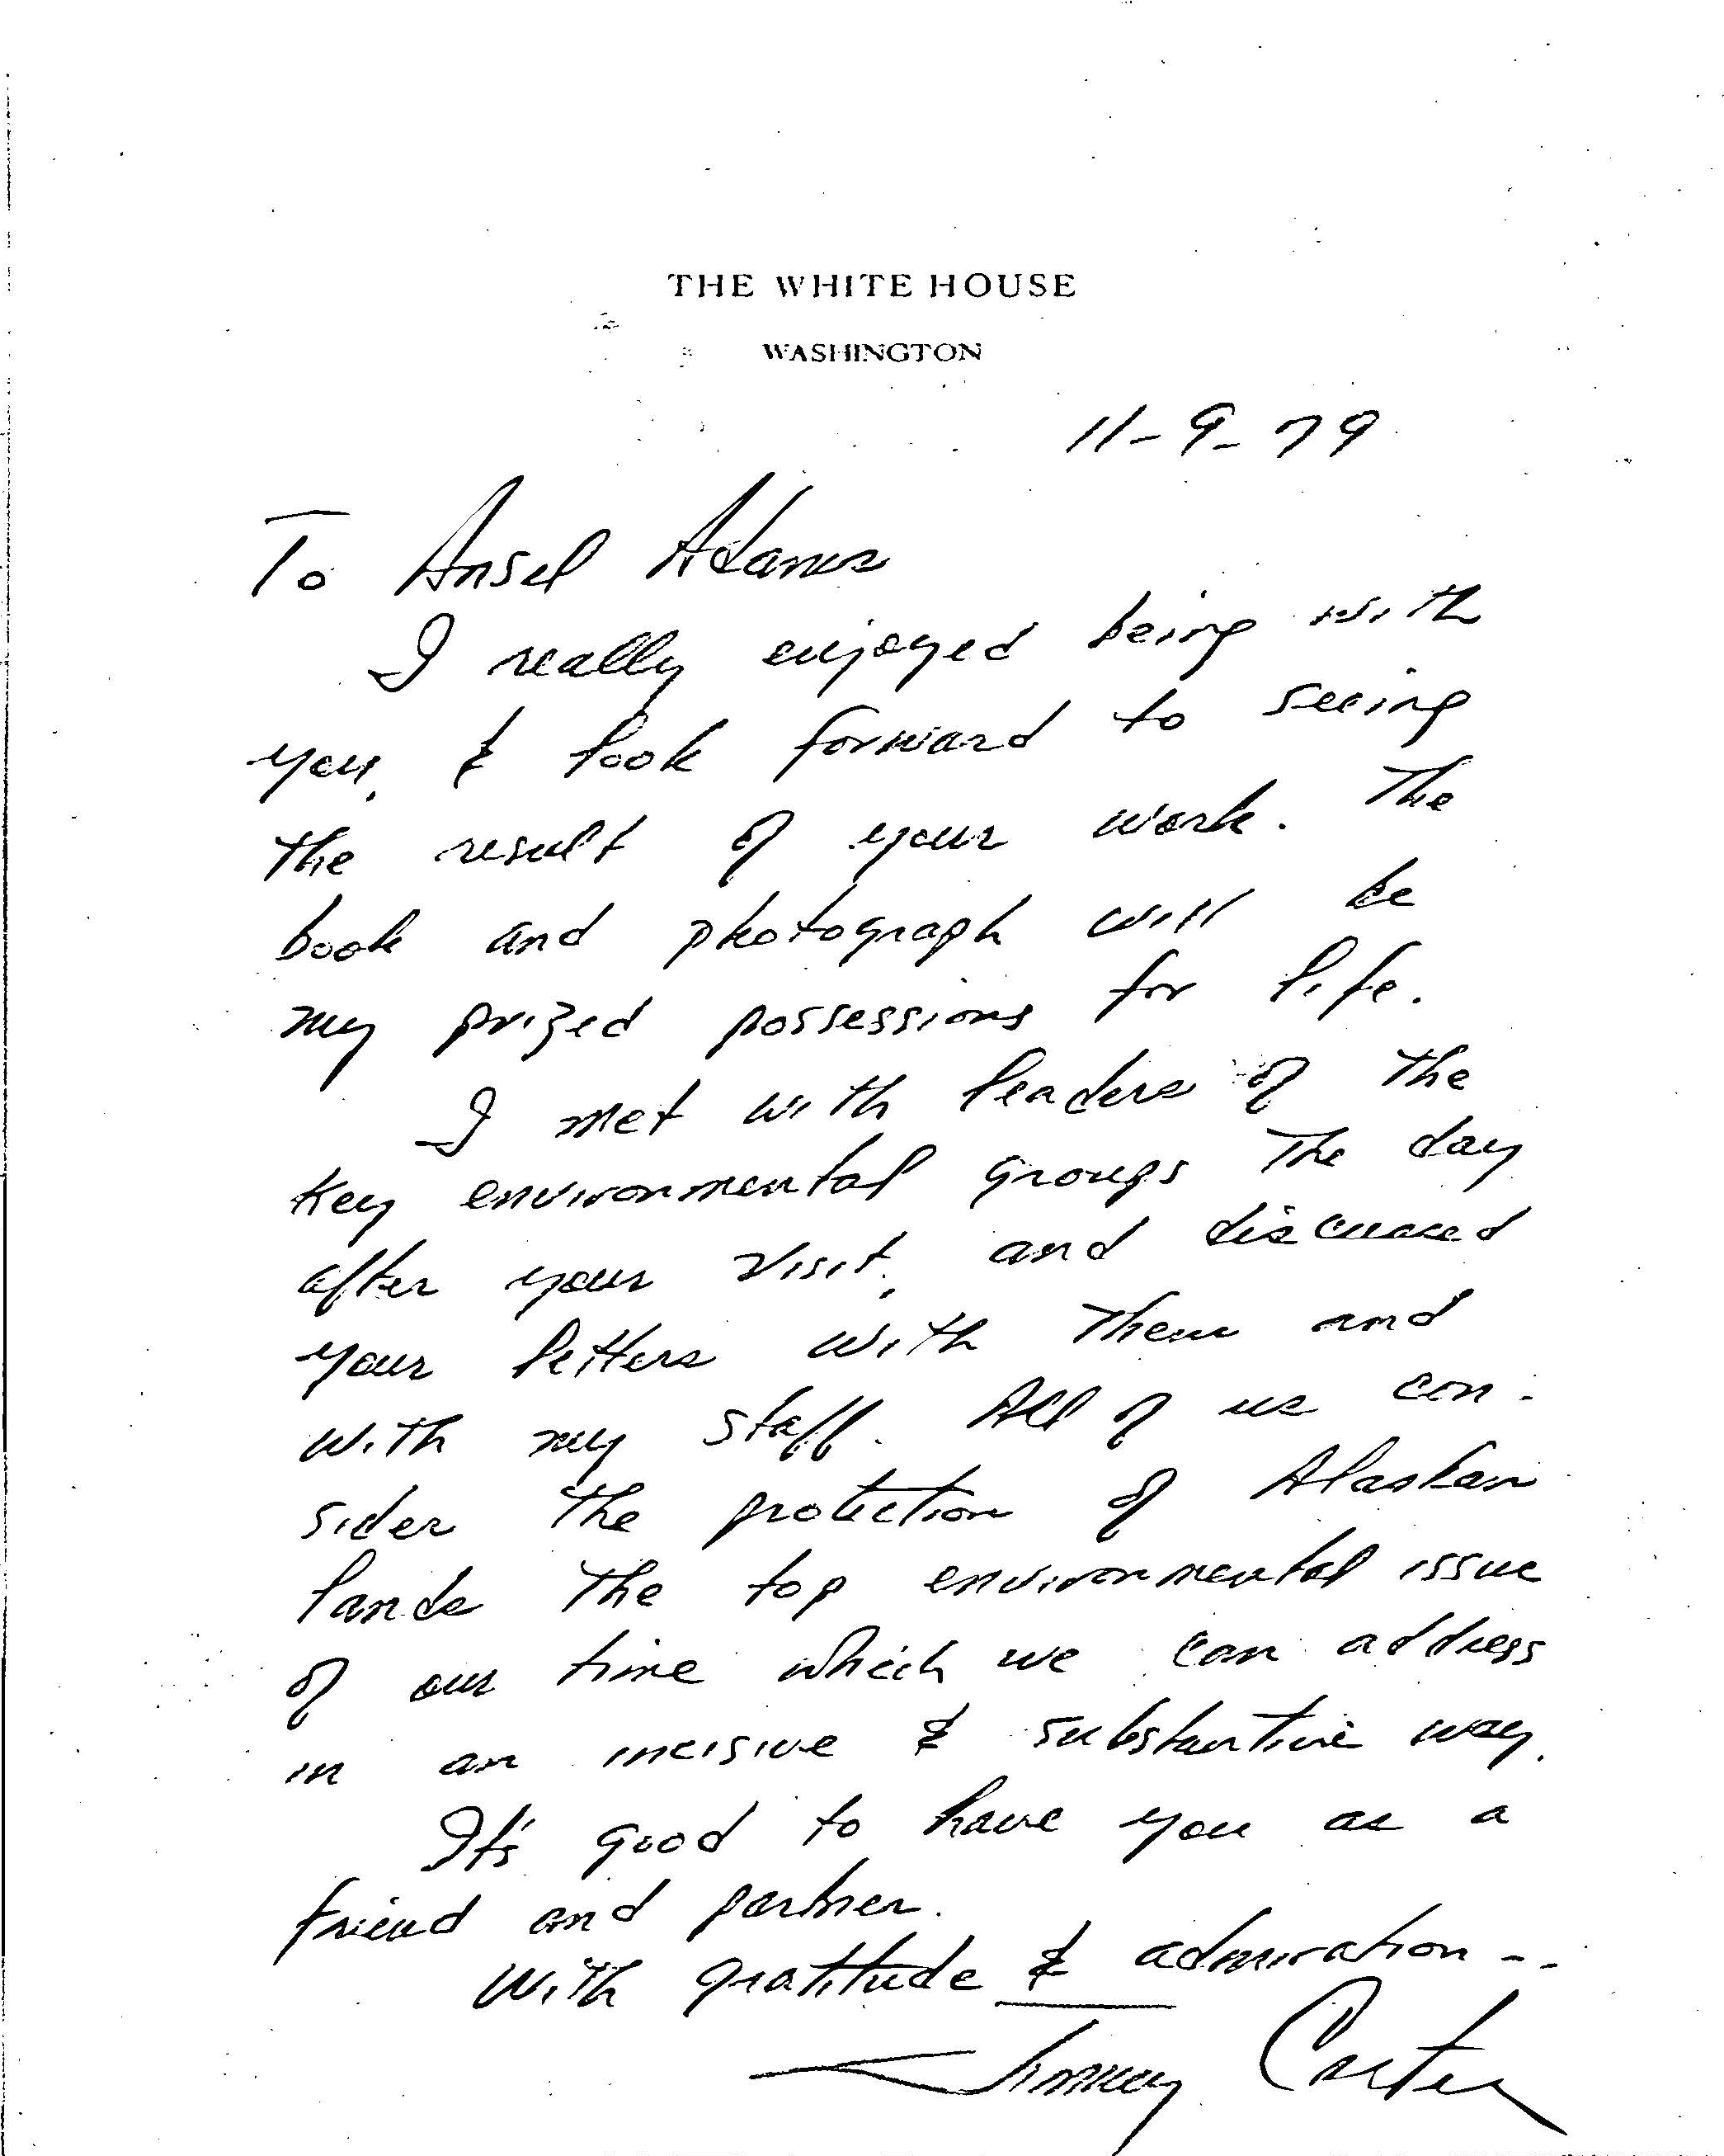 THE WHITE HOUSE
WASHINGTON
11-9-79
To Ansel Adams
I really enjoyed being with
you, & look forward to seeing
the result of your work. The
book and photograph will be
my prized possessions for life.
I met with leaders of the
key environmental groups the day
after your visit, and discussed
your letters with them and
with my staff. All of us con-
sider the protection of Alaskan
lands the top environmental issue
of our time which we can address
in an incisive & substantive way.
It's good to have you as a
friend and partner.
With gratitude & admiration--
Jimmy Carter